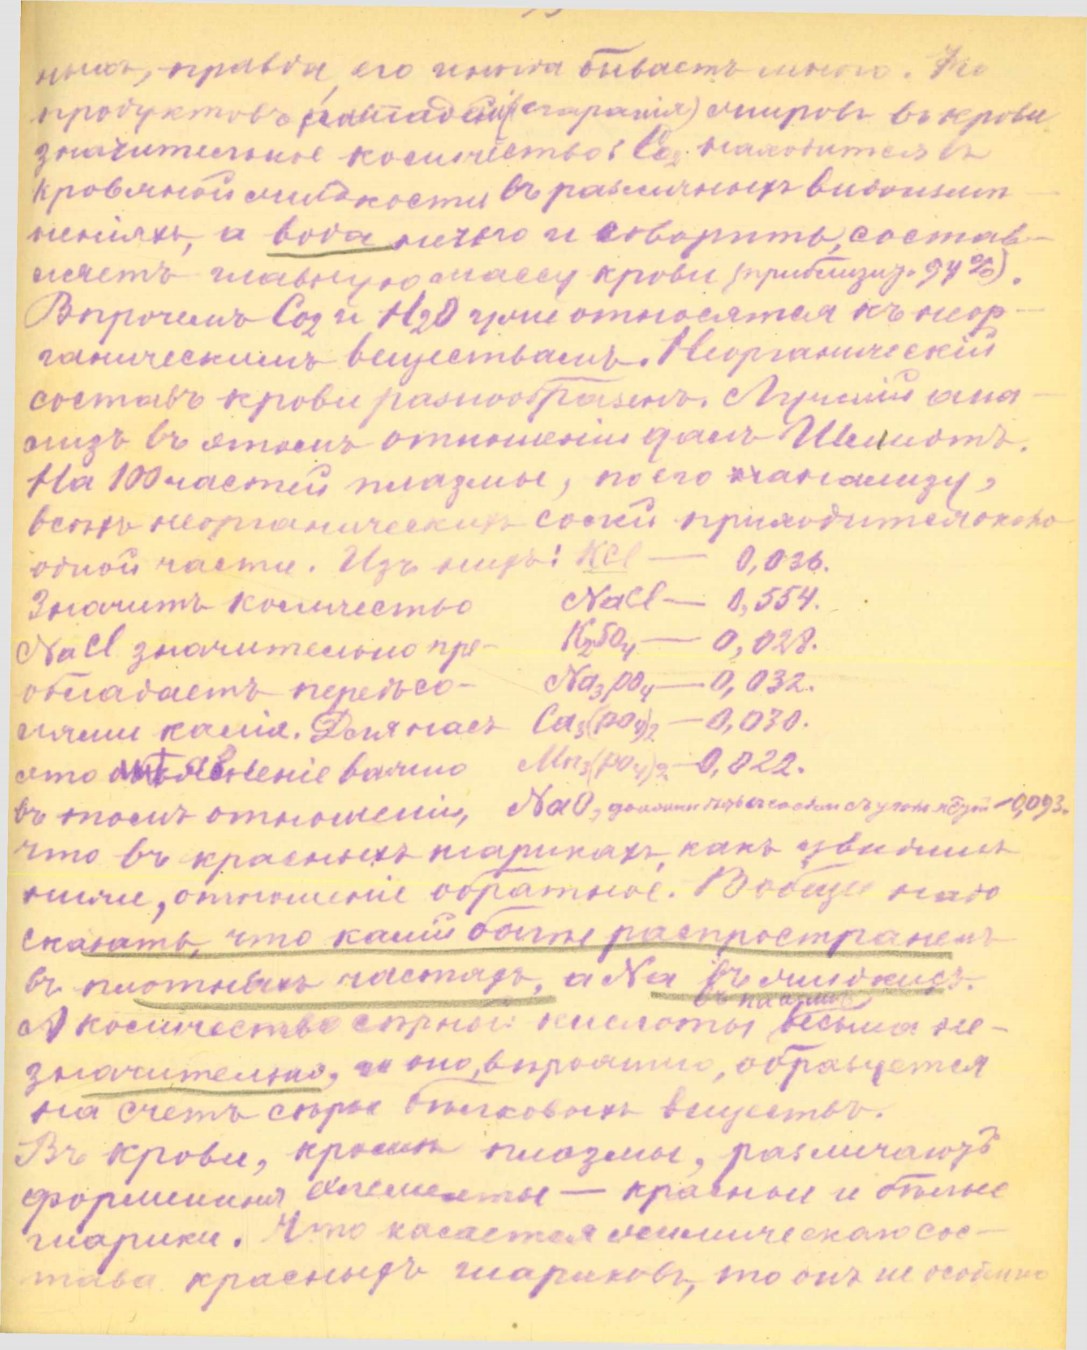 ныхъ, правда, его иногда бываетъ много. Но
продуктовъ (сгаранія) жировъ въ крови
значительное количество: Co2 находится въ
кровяной жидкости въ различныхъ видоизмѣ-
неніяхъ, а вода нечего и говорить, состав-
ляетъ главную массу крови (приблизит. 94%).
Впрочемъ Co2 и H2O уже относятся къ неор-
ганическимъ веществамъ. Неорганическій
составъ крови разнообразенъ. Лучшій ана-
лизъ въ этомъ отношеніи далъ Шмидтъ.
На 100 частей плазмы, по его анализу,
всѣхъ неорганическихъ солей приходится около
одной части. Изъ нихъ: KCl — 0,036.
Значитъ количество NaCl — 0,554.
NaCl значительно пре- K2SO4 — 0,028.
обладаетъ передъ со- Na3PO4 — 0,032.
лями калія. Для насъ Ca3(PO4)2 — 0,030.
это явленіе важно Mn3(PO4)2 — 0,022.
въ томъ отношеніи, NaO, — 0,093.
что въ красныхъ шарикахъ, какъ увидимъ
ниже, отношеніе обратное. Вообще надо
сказать, что калій болѣе распространенъ
въ плотныхъ частяхъ, а Na въ жидкихъ.
въ плазмѣ
А количество сѣрной кислоты весьма не-
значительно, и оно, вѣроятно, образуется
на счетъ сѣры бѣлковыхъ веществъ.
Въ крови, кромѣ плазмы, различаютъ
форменные элементы — красные и бѣлые
шарики. Что касается химическаго сос-
тава красныхъ шариковъ, то онъ не особенно